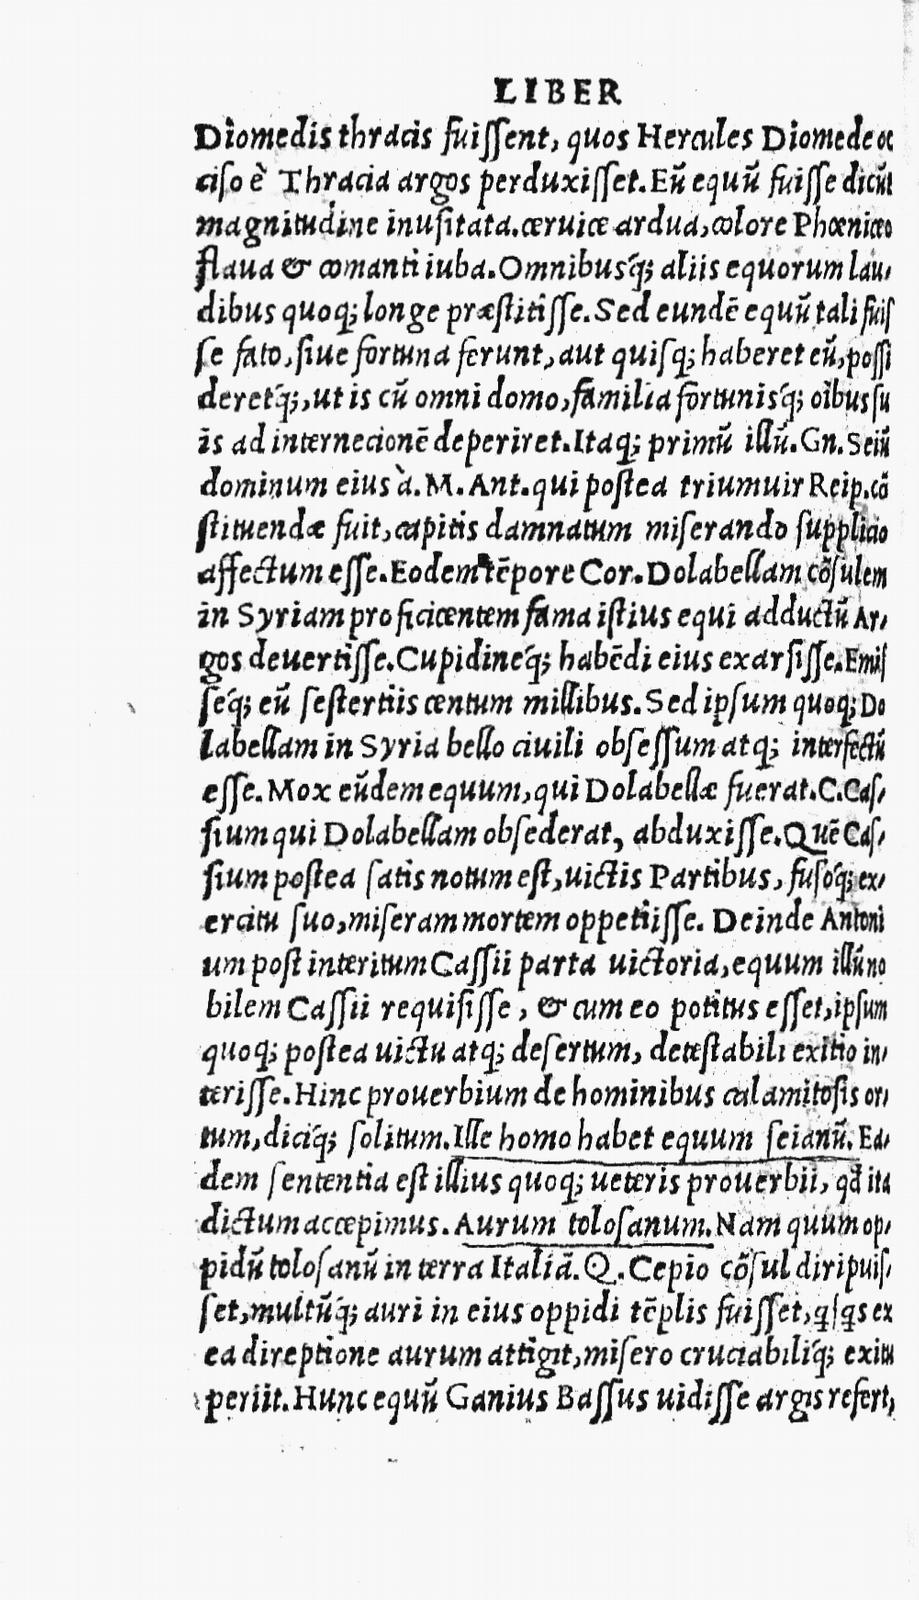 LIBER
Diomedis thracis fuissent, quos Hercules Diomede oc
ciso è Thracia argos perduxisset. Eũ equũ fuisse dicũt
magnitudine inusitata. ceruice ardua, colore Phœniceo
flaua & comanti iuba. Omnibusq́; aliis equorum lau-
dibus quoq; longe præstitisse. Sed eundẽ equũ tali fuis
se fato, siue fortuna ferunt, aut quisq; haberet eũ, possi
deretq́;, ut is cũ omni domo, familia fortunisq́; oĩbus su
is ad internecionẽ deperiret. Itaq; primũ illũ. Gn. Seiũ
dominum eius à. M. Ant. qui postea triumuir Reip. cõ
stituendæ fuit, capitis damnatum miserando supplicio
affectum esse. Eodem tẽpore Cor. Dolabellam cõsulem
in Syriam proficicentem fama istius equi adductũ Ar-
gos deuertisse. Cupidineq́; habẽdi eius exarsisse. Emis
seq́; eũ sestertiis centum millibus. Sed ipsum quoq; Do
labellam in Syria bello ciuili obsessum atq; interfectũ
esse. Mox eũdem equum, qui Dolabellæ fuerat. C. Cas-
sium qui Dolabellam obsederat, abduxisse. Quẽ Cas-
sium postea satis notum est, uictis Partibus, fusoq́; ex-
ercitu suo, miseram mortem oppetiisse. Deinde Antoni
um post interitum Cassii parta uictoria, equum illũ no
bilem Cassii requisisse, & cum eo potitus esset, ipsum
quoq; postea uictu atq; desertum, detestabili exitio in-
terisse. Hinc prouerbium de hominibus calamitosis or-
tum, diciq́; solitum. Ille homo habet equum seianũ. Ea-
dem sententia est illius quoq; ueteris prouerbii, qđ ita
dictum accepimus. Aurum tolosanum. Nam quum op-
pidũ tolosanũ in terra Italiã. Q. Cepio cõsul diripuis-
set, multũq́; auri in eius oppidi tẽplis fuisset, qsqs ex
ea direptione aurum attigit, misero cruciabiliq́; exitu
periit. Hunc equũ Ganius Bassus uidisse argis refert,